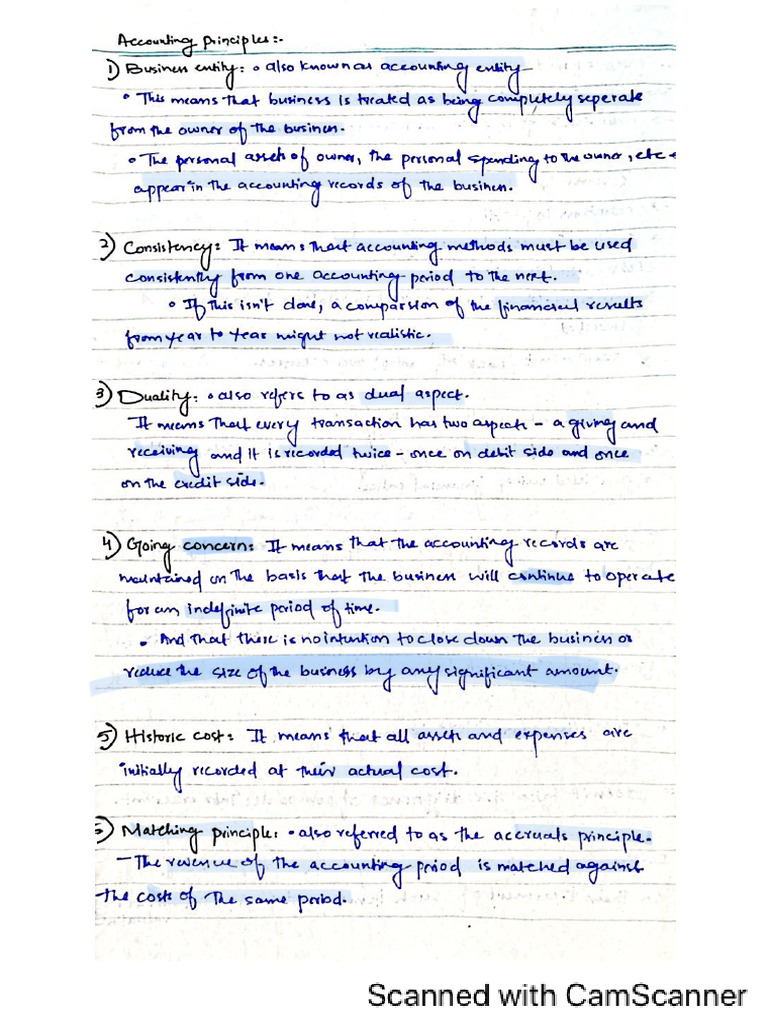 Accounting Principles:-
1) Business entity: • also known as accounting entity
• This means that business is treated as being completely seperate
from the owner of the business.
• The personal assets of owner, the personal spending to the owner, etc
appear in the accounting records of the business.
2) Consistency: It means that accounting methods must be used
consistently from one accounting period to the next.
• If this isn't done, a comparsion of the financial results
from year to year might not realistic.
3) Duality: • also refers to as dual aspect.
It means that every transaction has two aspects - a giving and
receiving and it is recorded twice - once on debit side and once
on the credit side.
4) Going concern: It means that the accounting records are
maintained on the basis that the business will continue to operate
for an indefinite period of time.
• And that there is no intention to close down the business or
reduce the size of the business by any significant amount.
5) Historic cost: It means that all assets and expenses are
initially recorded at their actual cost.
6) Matching principle: • also referred to as the accruals principle.
- The revenue of the accounting period is matched against
the costs of the same period.
Scanned with CamScanner